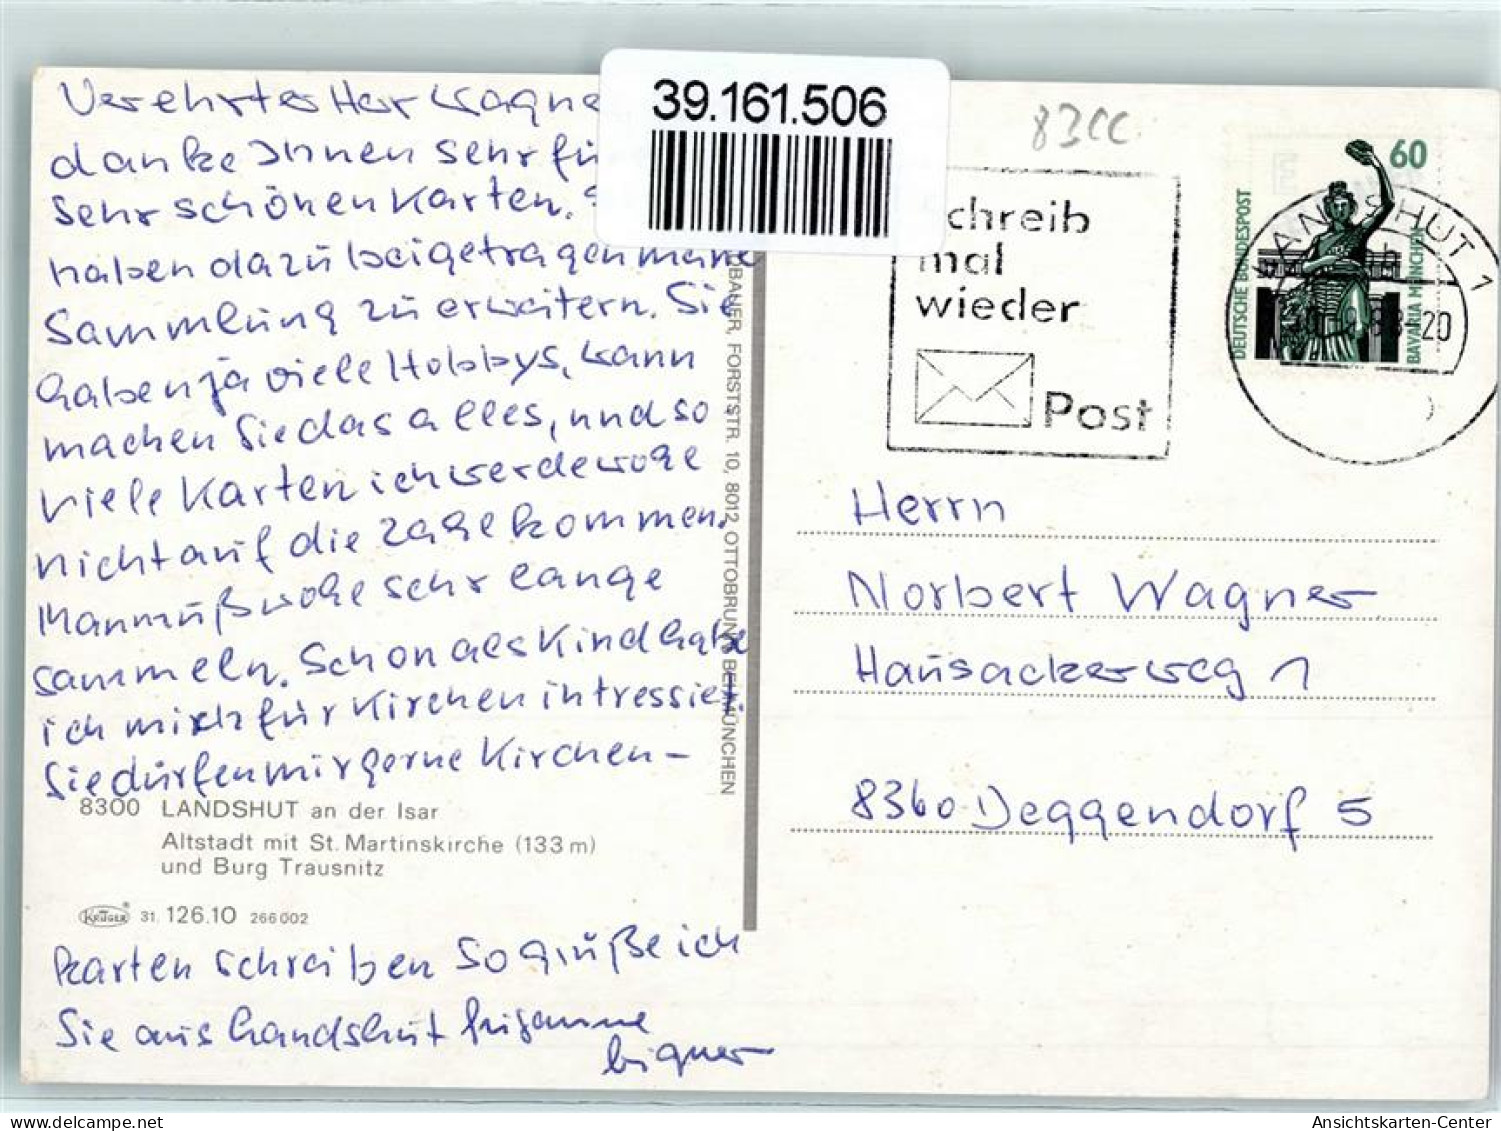 Verehrter Herr Wagne
danke Ihnen sehr fü
sehr schönen Karten. S
haben dazu beigetragen meine
Sammlung zu erweitern. Sie
haben ja viele Hobbys, wann
machen Sie das alles, und so
viele Karten ich werde wohl
nicht auf die Zahl kommen.
Man muß wohl sehr lange
sammeln. Schon als Kind habe
ich mich für Kirchen intressiert.
Sie dürfen mir gerne Kirchen-
8300 LANDSHUT an der Isar
Altstadt mit St. Martinskirche (133 m)
und Burg Trausnitz
KRÜGER ® 31. 126.10 266 002
karten schreiben so grüße ich
Sie aus Landshut
BAUER, FORSTSTR. 10, 8012 OTTOBRUNN BEI MÜNCHEN
39.161.506
83
chreib
mal
wieder
Post
60
DEUTSCHE BUNDESPOST
BAVARIA MÜNCHEN
LANDSHUT 1
20
Herrn
Norbert Wagner
Hausackerweg 1
8360 Deggendorf 5
www.delcampe.net
Ansichtskarten-Center